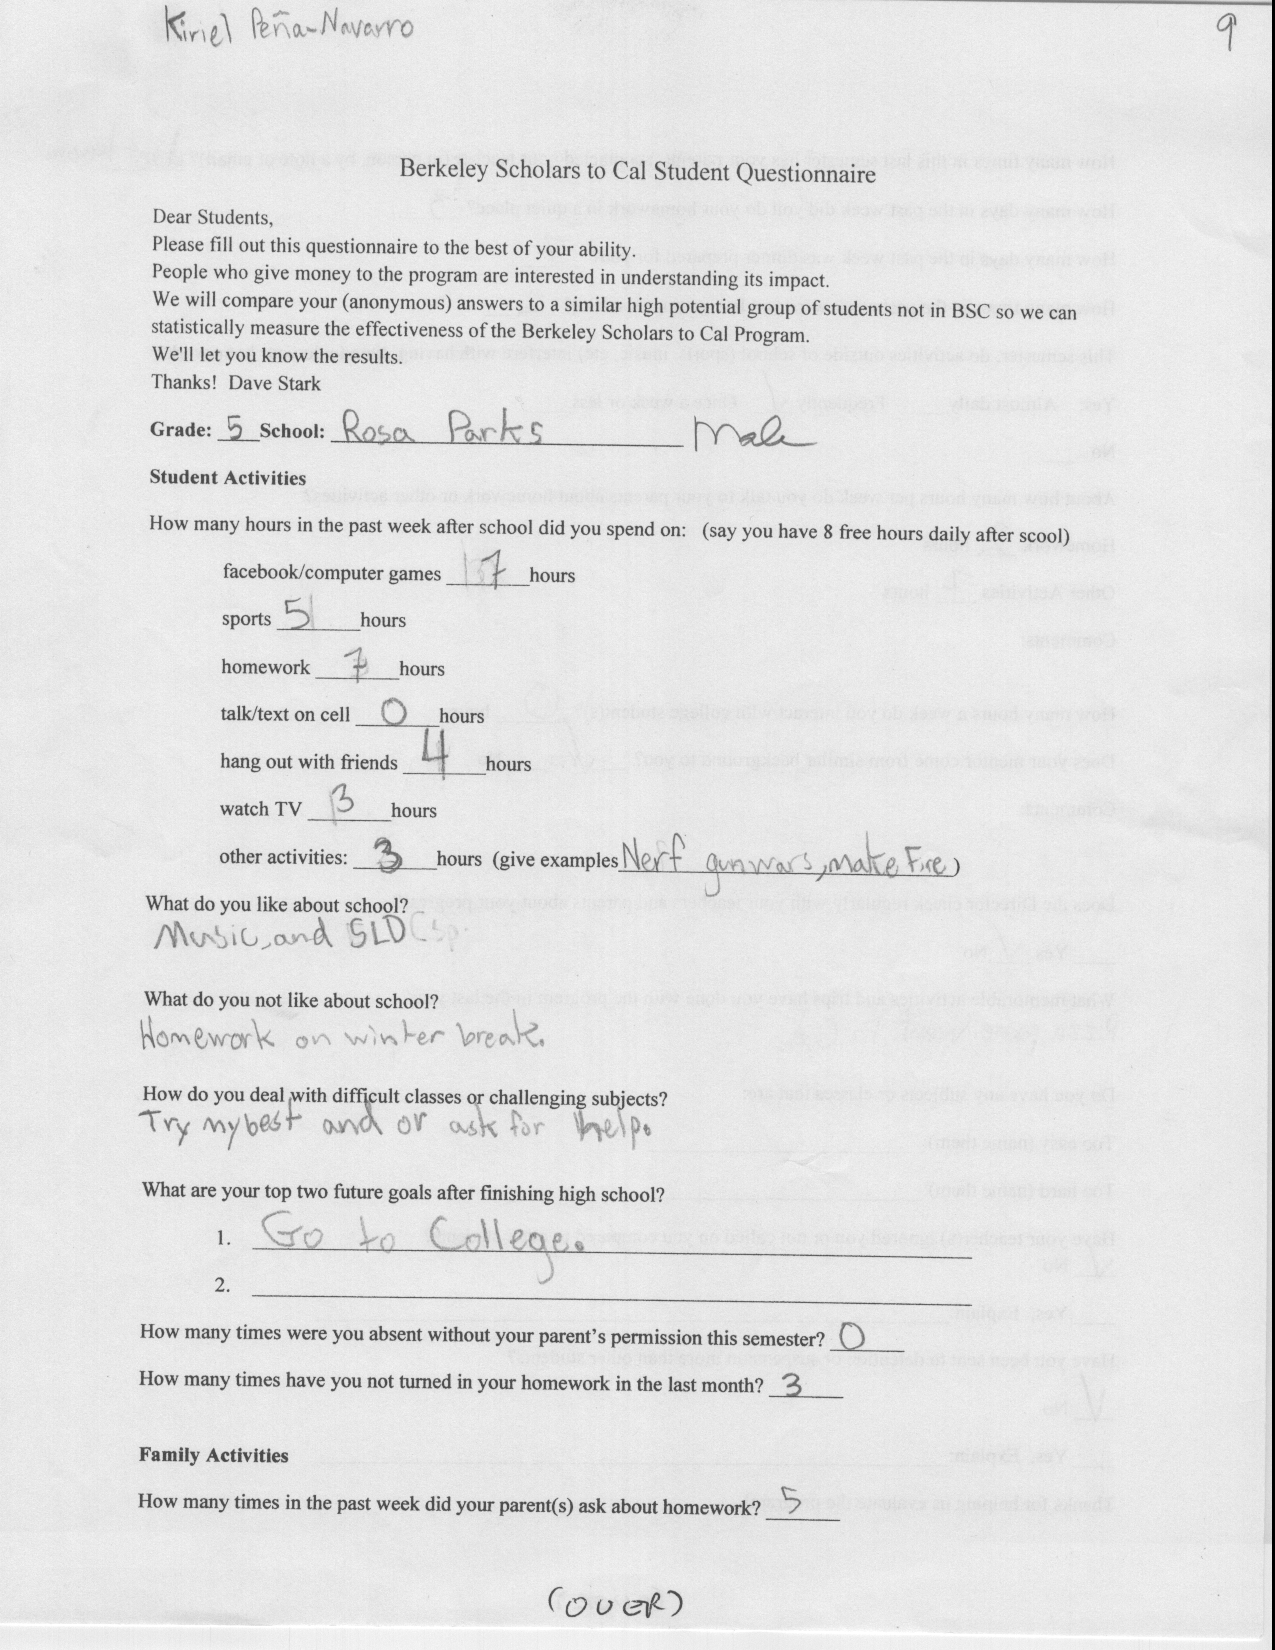 Kiriel Peña-Navarro 9
Berkeley Scholars to Cal Student Questionnaire
Dear Students,
Please fill out this questionnaire to the best of your ability.
People who give money to the program are interested in understanding its impact.
We will compare your (anonymous) answers to a similar high potential group of students not in BSC so we can
statistically measure the effectiveness of the Berkeley Scholars to Cal Program.
We'll let you know the results.
Thanks! Dave Stark
Grade: 5 School: Rosa Parks Male
Student Activities
How many hours in the past week after school did you spend on: (say you have 8 free hours daily after scool)
facebook/computer games 7 hours
sports 5 hours
homework 7 hours
talk/text on cell 0 hours
hang out with friends 4 hours
watch TV 3 hours
other activities: 3 hours (give examples Nerf gun wars, make Fire)
What do you like about school?
Music, and SLD
What do you not like about school?
Homework on winter break.
How do you deal with difficult classes or challenging subjects?
Try my best and or ask for help.
What are your top two future goals after finishing high school?
1. Go to College.
2.
How many times were you absent without your parent's permission this semester? 0
How many times have you not turned in your homework in the last month? 3
Family Activities
How many times in the past week did your parent(s) ask about homework? 5
(OVER)